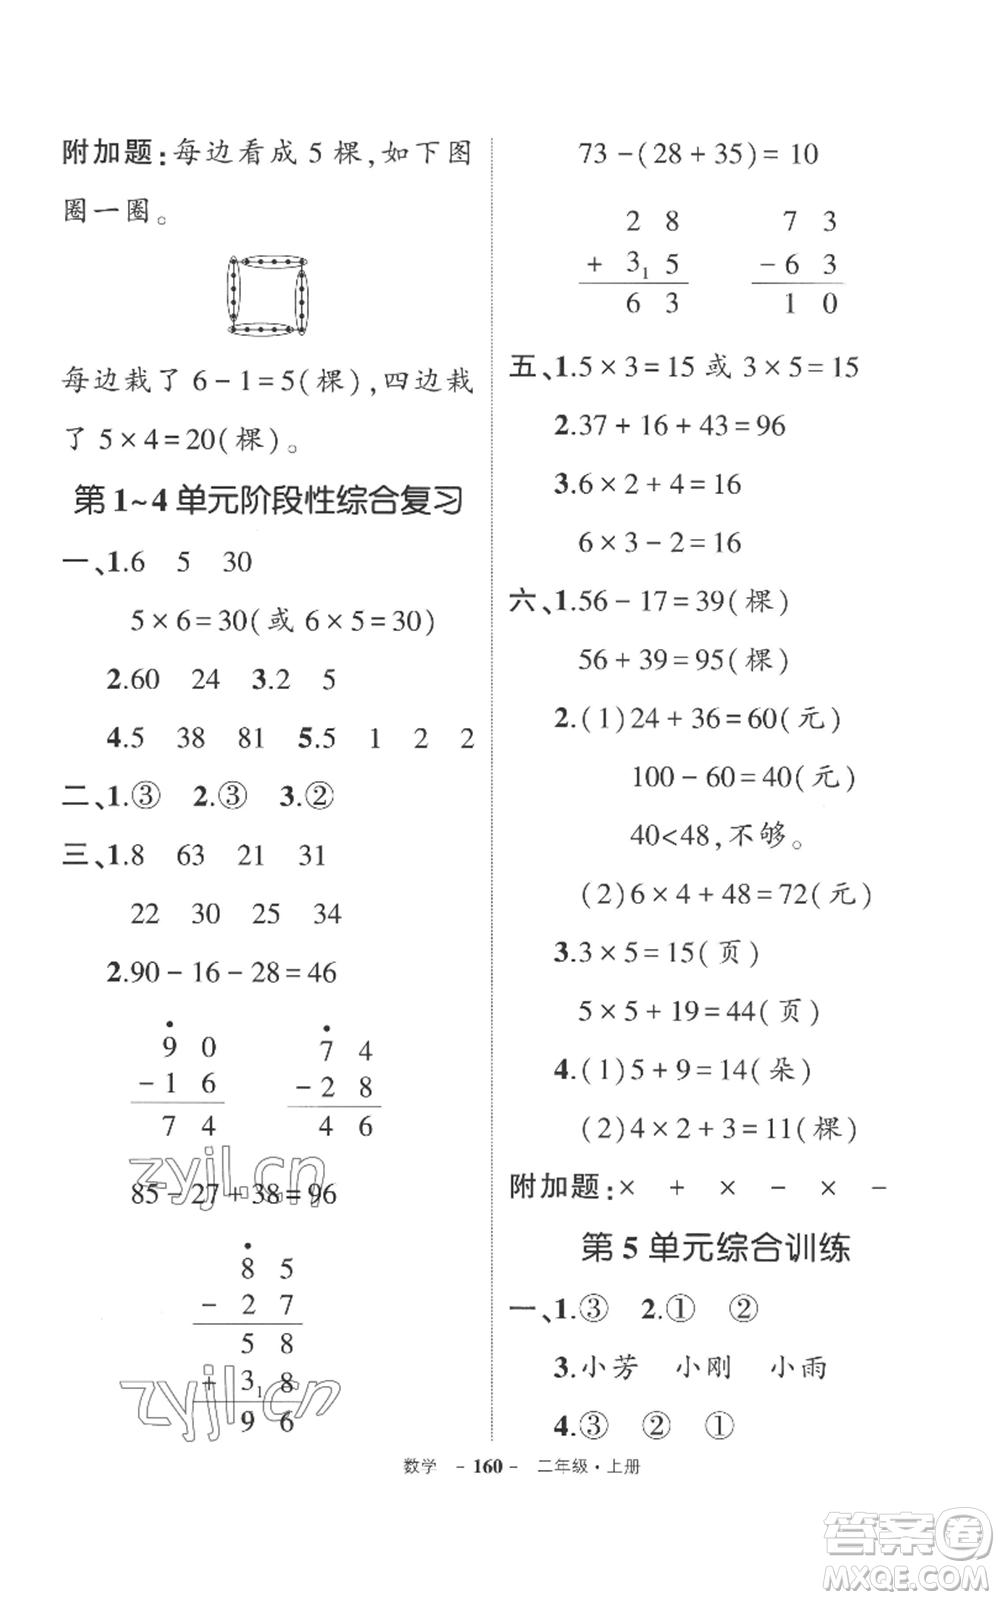 附加题:每边看成 5 棵,如下图
圈一圈。
每边栽了 6－1＝5(棵),四边栽
了 5×4＝20(棵)。
第 1~4 单元阶段性综合复习
一、1.6 5 30
5×6＝30(或 6×5＝30)
2.60 24 3.2 5
4.5 38 81 5.5 1 2 2
二、1.③ 2.③ 3.②
三、1.8 63 21 31
22 30 25 34
2.90－16－28＝46
9 0 7 4
－1 6 －2 8
7 4 4 6
zyjl.cn
85－27＋38＝96
8 5
－ 2 7
5 8
＋ 3₁ 8
zyjl.cn
9 6
73－(28＋35)＝10
2 8 7 3
＋ 3₁ 5 －6 3
6 3 1 0
五、1.5×3＝15 或 3×5＝15
2.37＋16＋43＝96
3.6×2＋4＝16
6×3－2＝16
六、1.56－17＝39(棵)
56＋39＝95(棵)
2.(1)24＋36＝60(元)
100－60＝40(元)
40<48,不够。
(2)6×4＋48＝72(元)
3.3×5＝15(页)
5×5＋19＝44(页)
4.(1)5＋9＝14(朵)
(2)4×2＋3＝11(棵)
附加题:× ＋ × － × －
第 5 单元综合训练
一、1.③ 2.① ②
3.小芳 小刚 小雨
4.③ ② ①
数学 －160－ 二年级·上册
答案卷
MXQE.COM